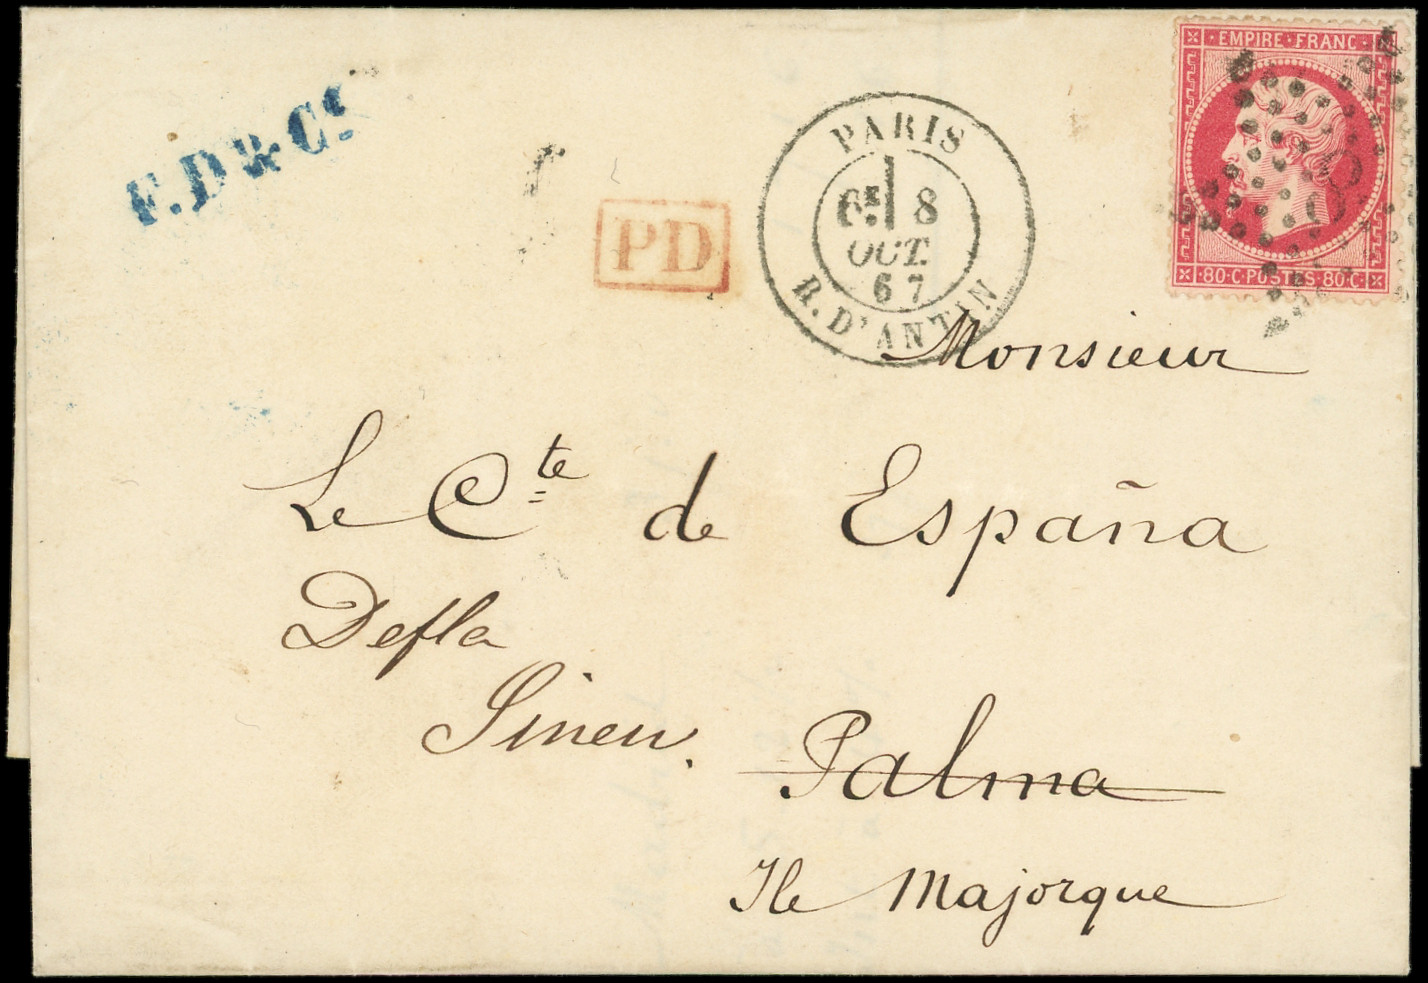 F. D & Cᵉ
PD
PARIS
6ᴱ 8
OCT.
67
R. D'ANTIN
EMPIRE FRANC
80·C·POSTES·80·C
8
Monsieur
Le Cᵗᵉ de España
Defla
Sineu.
Palma
Ile Majorque